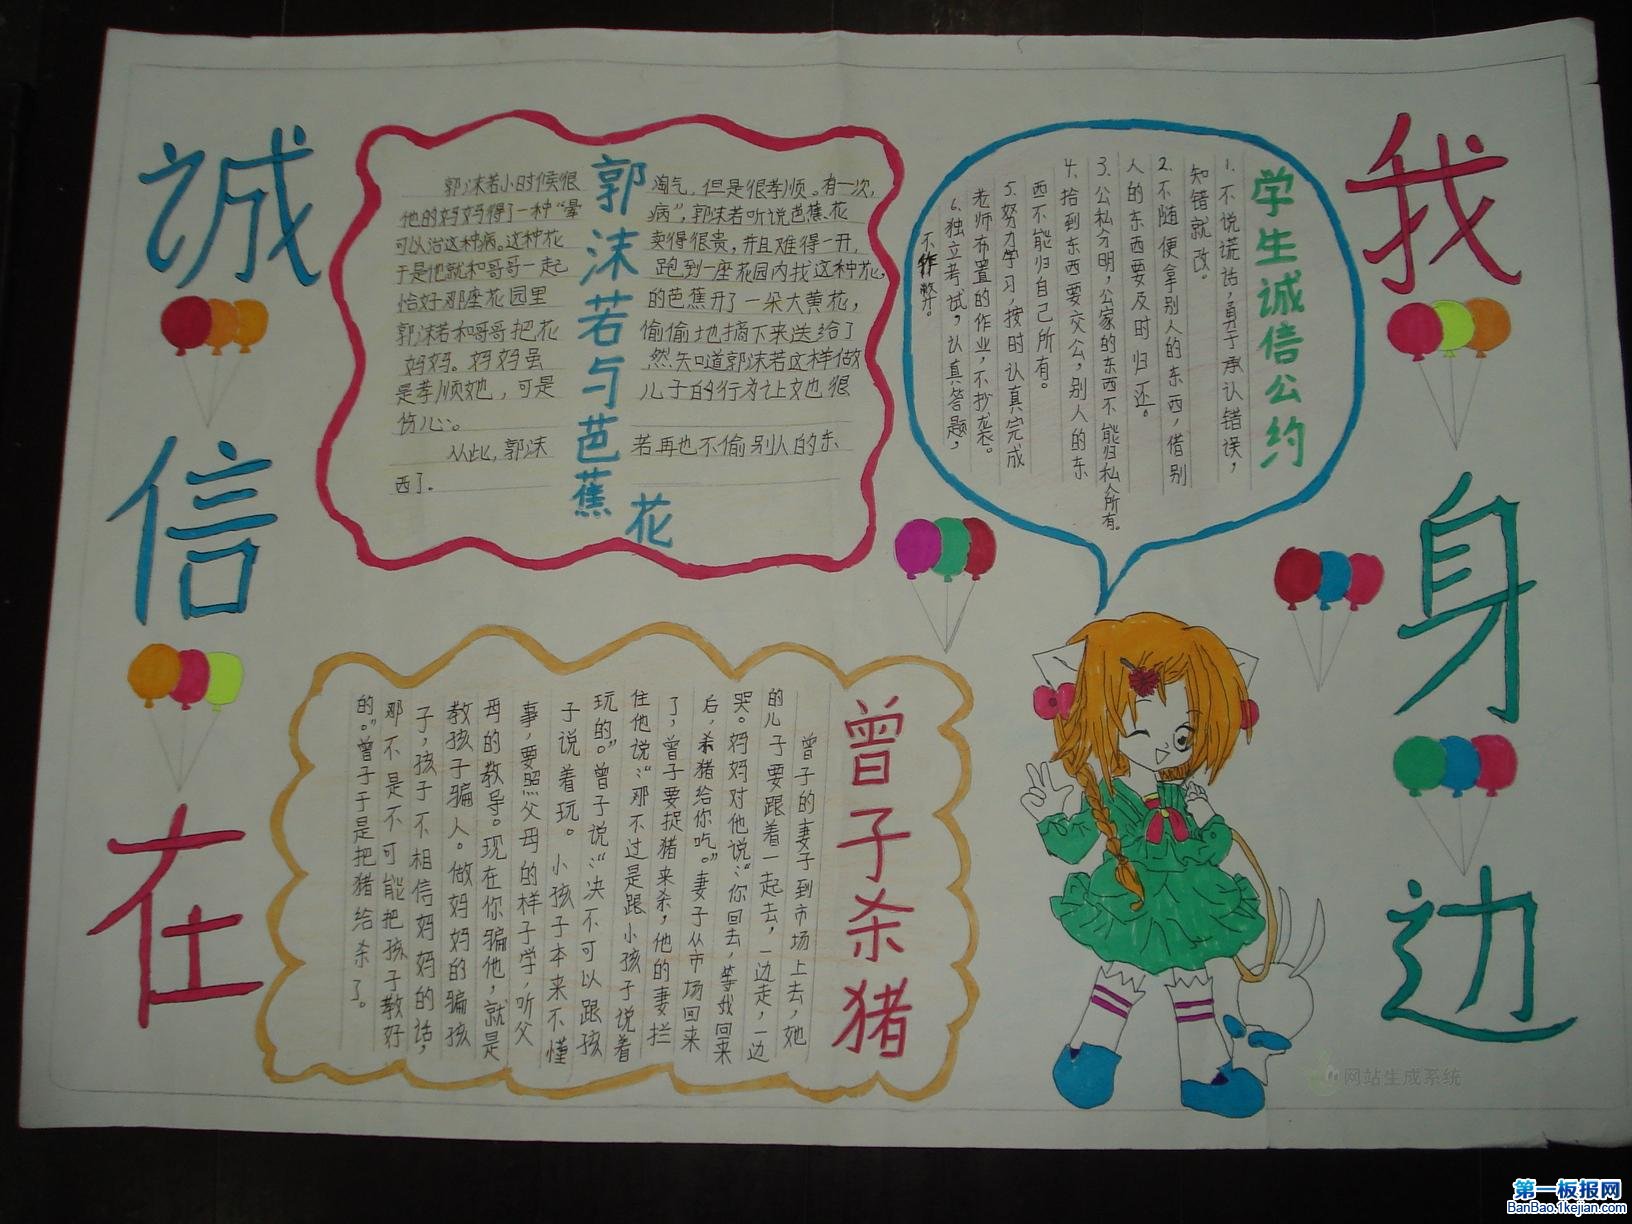 誠
信
在
我
身
边
郭沫若与芭蕉花
郭沫若小时候很淘气,但是很孝顺。有一次,
他的妈妈得了一种“晕病”,郭沫若听说芭蕉花
可以治这种病。这种花卖得很贵,并且难得一开,
于是他就和哥哥一起跑到一座花园内找这种花,
恰好那座花园里的芭蕉开了一朵大黄花,
郭沫若和哥哥把花偷偷地摘下来送给了
妈妈。妈妈虽然知道郭沫若这样做
是孝顺她,可是儿子的行为让她很
伤心。
从此,郭沫若再也不偷别人的东
西了.
学生诚信公约
1.不说谎话,勇于承认错误,
知错就改。
2.不随便拿别人的东西,借别
人的东西要及时归还。
3.公私分明,公家的东西不能归私人所有。
4.拾到东西要交公,别人的东
西不能归自己所有。
5.努力学习,按时认真完成
老师布置的作业,不抄袭。
6.独立考试,认真答题,
不作弊。
曾子杀猪
曾子的妻子到市场上去,她
的儿子要跟着一起去,一边走,一边
哭。妈妈对他说:“你回去,等我回来
后,杀猪给你吃。”妻子从市场回来
了,曾子要捉猪来杀,他的妻拦
住他说:“那不过是跟小孩子说着
玩的。”曾子说:“决不可以跟孩
子说着玩。小孩子本来不懂
事,要照父母的样子学,听父
母的教导。现在你骗他,就是
教孩子骗人。做妈妈的骗孩
子,孩子不相信妈妈的话,
那不是不可能把孩子教好
的。”曾子于是把猪给杀了。
网站生成系统
第一板报网
BanBao.1kejian.com